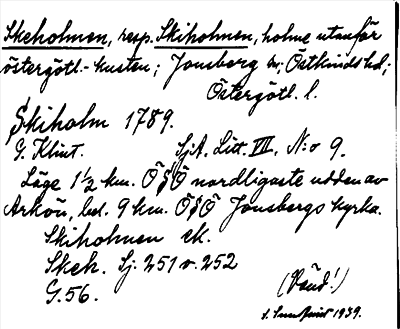 Skeholmen, resp. Skiholmen, holme utanför
östergötl.-kusten; Jonsberg sn; Östkinds hd;
Östergötl. l.
Skiholm 1789.
G. Klint. SjA. Litt. VII. N:o 9.
Läge 1½ km. ÖSÖ nordligaste udden av
Arkön, bel. 9 km. ÖSÖ Jonsbergs kyrka.
Skiholmen ek.
Skeh. Sj. 251 o. 252
G. 56.
(Vänd!)
1939.